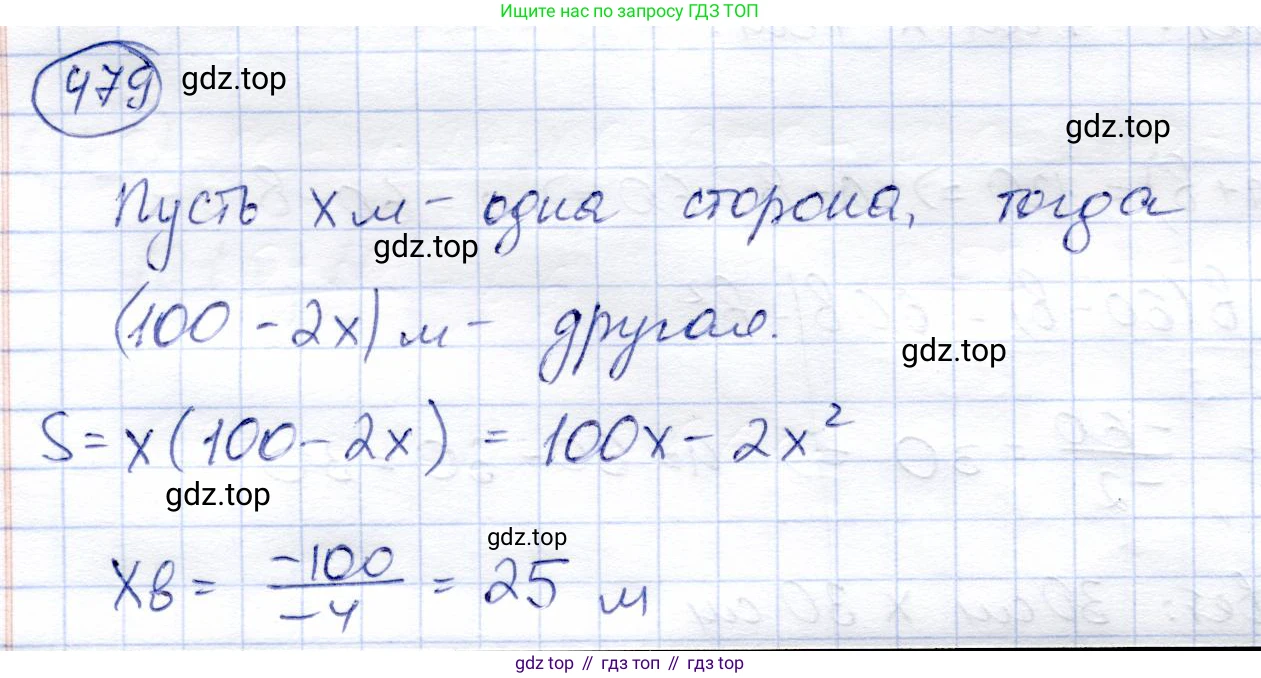 Ищите нас по запросу ГДЗ ТОП
479 gdz.top
gdz.top
Пусть x м - одна сторона, тогда
gdz.top
(100 - 2x) м - другая.
gdz.top
S = x(100 - 2x) = 100x - 2x²
gdz.top
gdz.top
xв = -100/-4 = 25 м
gdz.top // гдз топ // гдз top